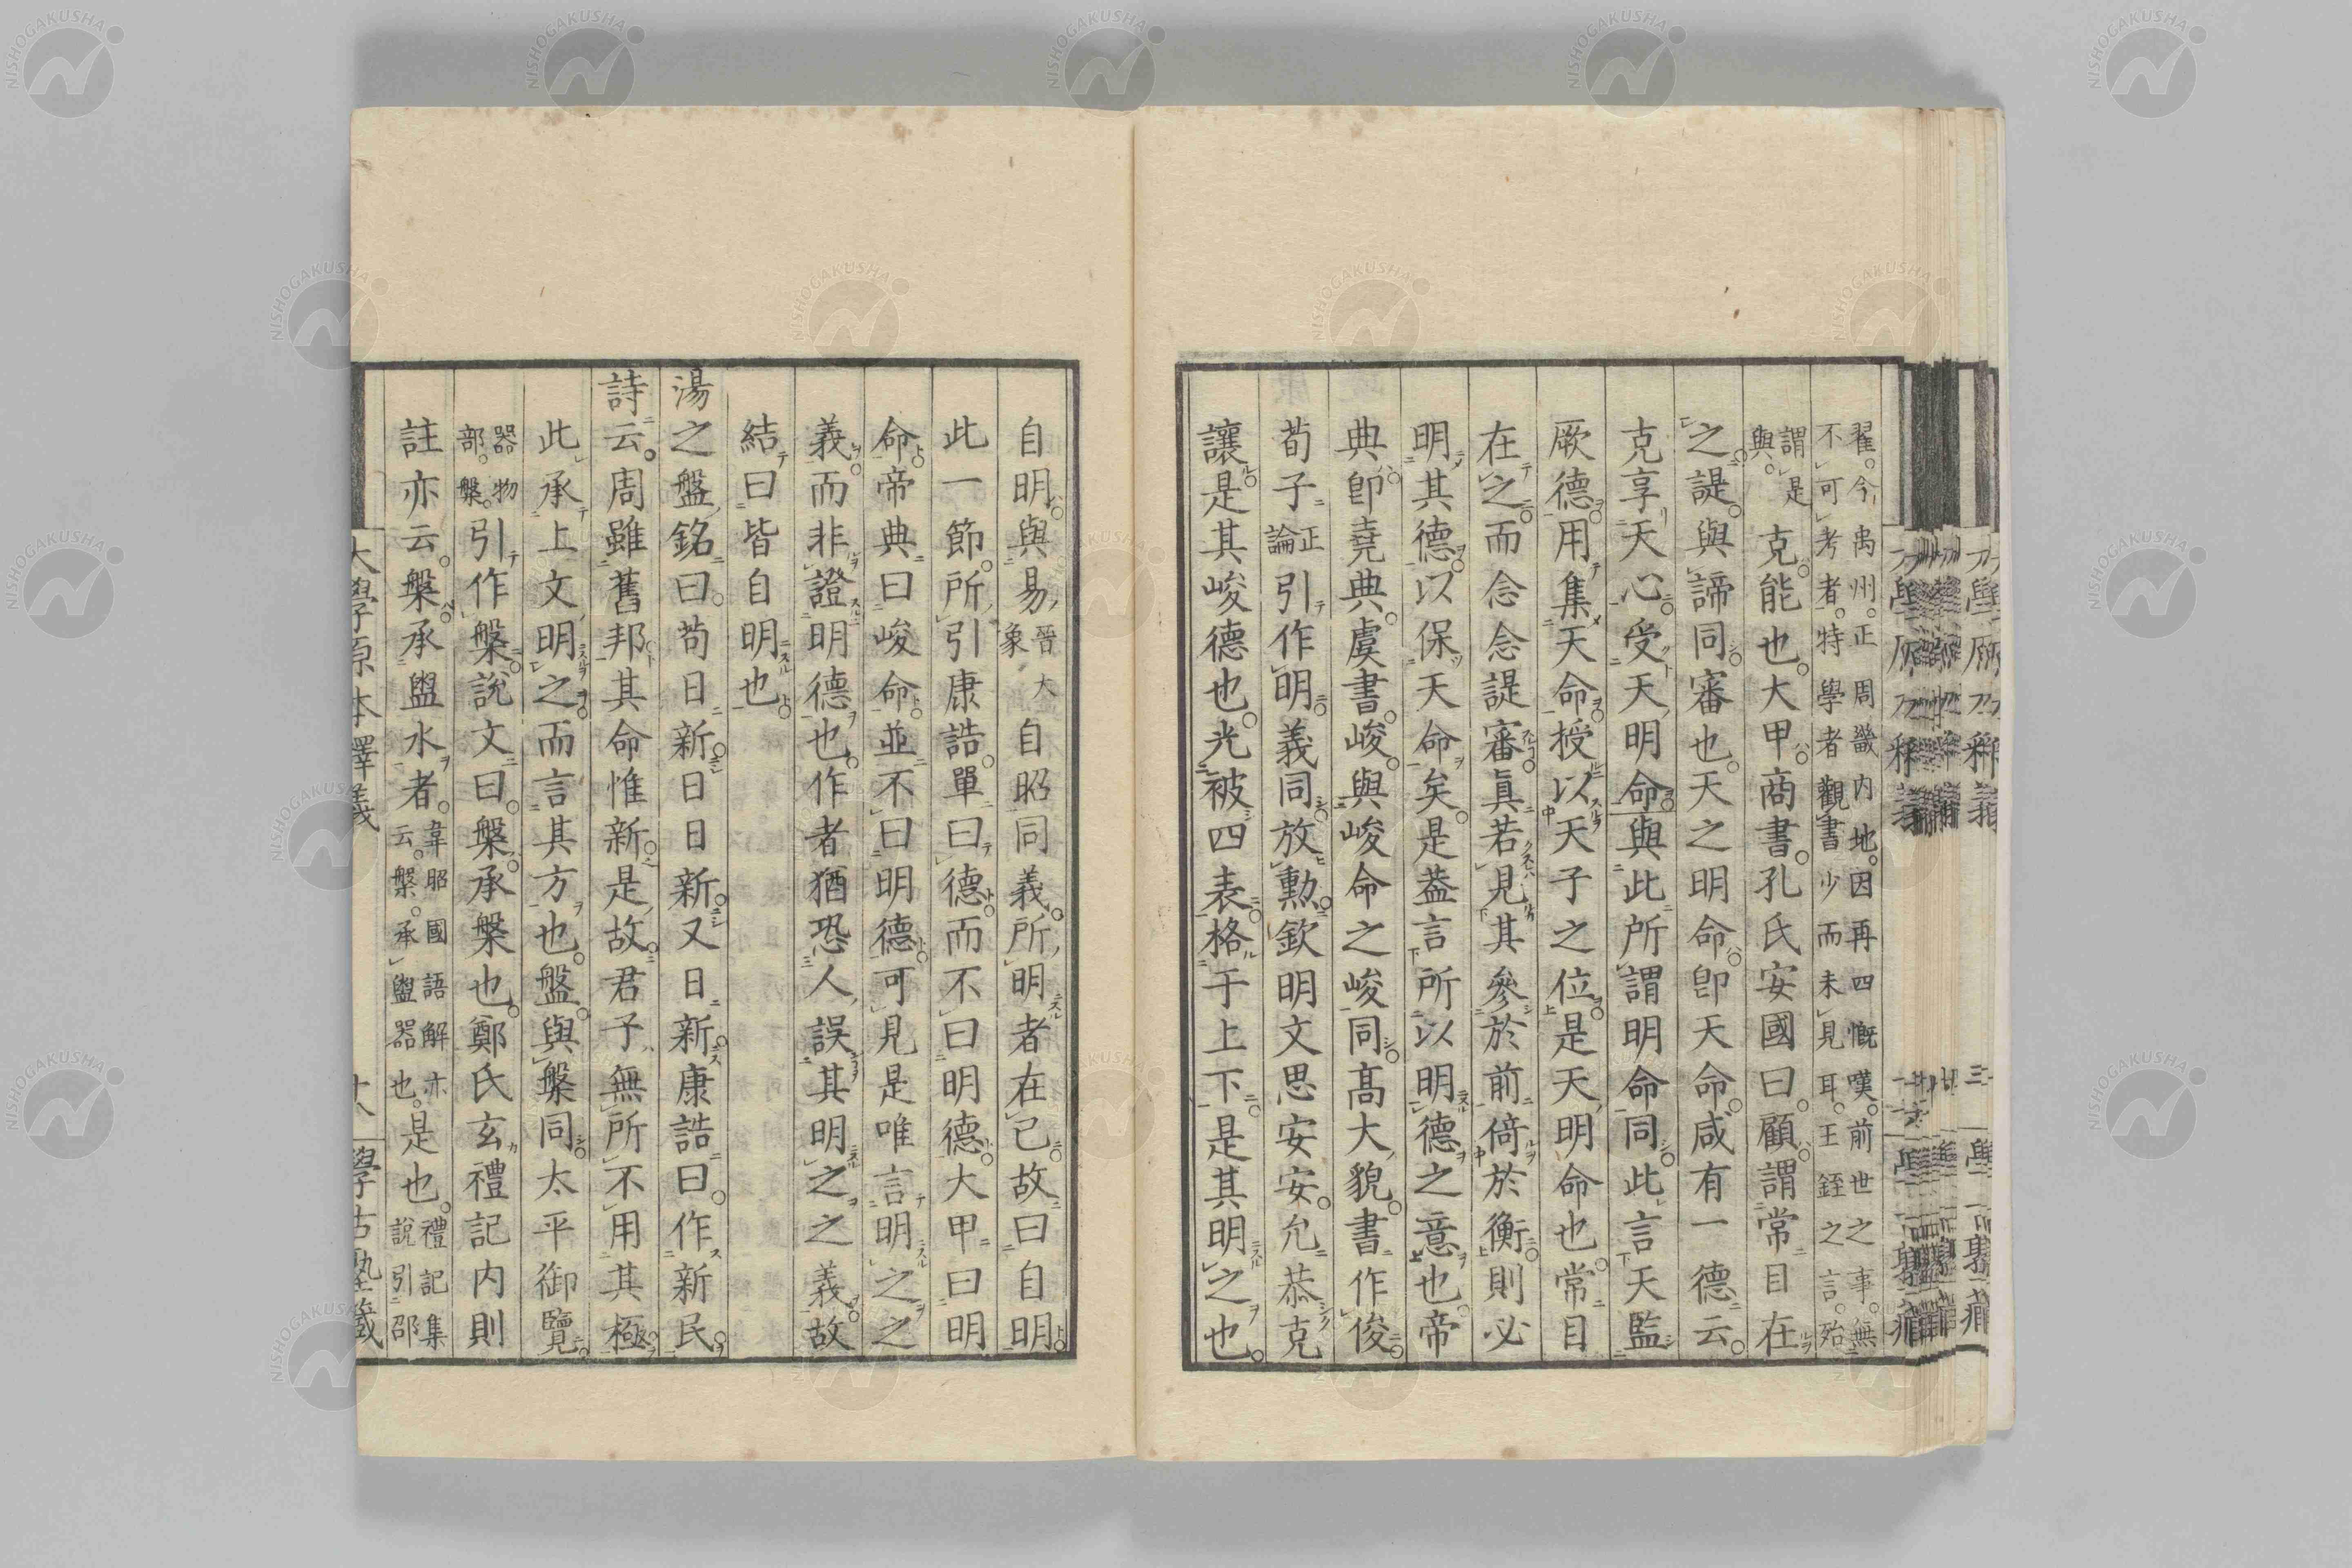 翟。今禹州。正周畿内地。因再四慨嘆。前世之事。無
不可考者。特學者觀書少而未見耳。王銍之言。殆
謂是與。克能也。大甲商書。孔氏安國曰。顧謂常目在
之諟。與諦同。審也。天之明命。卽天命。咸有一德云。
克享天心。受天明命。與此所謂明命同。此言天監
厥德。用集天命。授以天子之位。是天明命也。常目
在之。而念念諟審。眞若見其參於前倚於衡。則必
明其德。以保天命矣。是蓋言所以明德之意也。帝
典卽堯典。虞書。峻。與峻命之峻同。高大貌。書作俊。
荀子正論引作明。義同。放勲。欽明文思安安。允恭克
讓。是其峻德也。光被四表。格于上下。是其明之也。
自明。與易晉大象自昭同義。所明者在己。故曰自明。
此一節。所引康誥。單曰德。而不曰明德。大甲曰明
命。帝典曰峻命。並不曰明德。可見是唯言明之之
義。而非證明德也。作者猶恐人誤其明之之義。故
結曰皆自明也。
湯之盤銘曰。苟日新。日日新。又日新。康誥曰。作新民。
詩云。周雖舊邦。其命惟新。是故君子無所不用其極。
此承上文明之。而言其方也。盤。與槃同。太平御覽。
器物部。槃。引作槃。說文曰。槃。承槃也。鄭氏玄禮記内則
註亦云。槃。承盥水者。韋昭國語解亦云。槃。承盥器也。是也。禮記集說引邵
大學原本釋義
學古塾藏